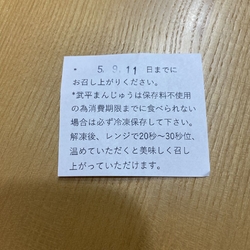 * 5.9.11 日までに
お召し上がりください。
*武平まんじゅうは保存料不使用
の為消費期限までに食べられない
場合は必ず冷凍保存して下さい。
解凍後、レンジで20秒〜30秒位、
温めていただくと美味しく召し
上がっていただけます。